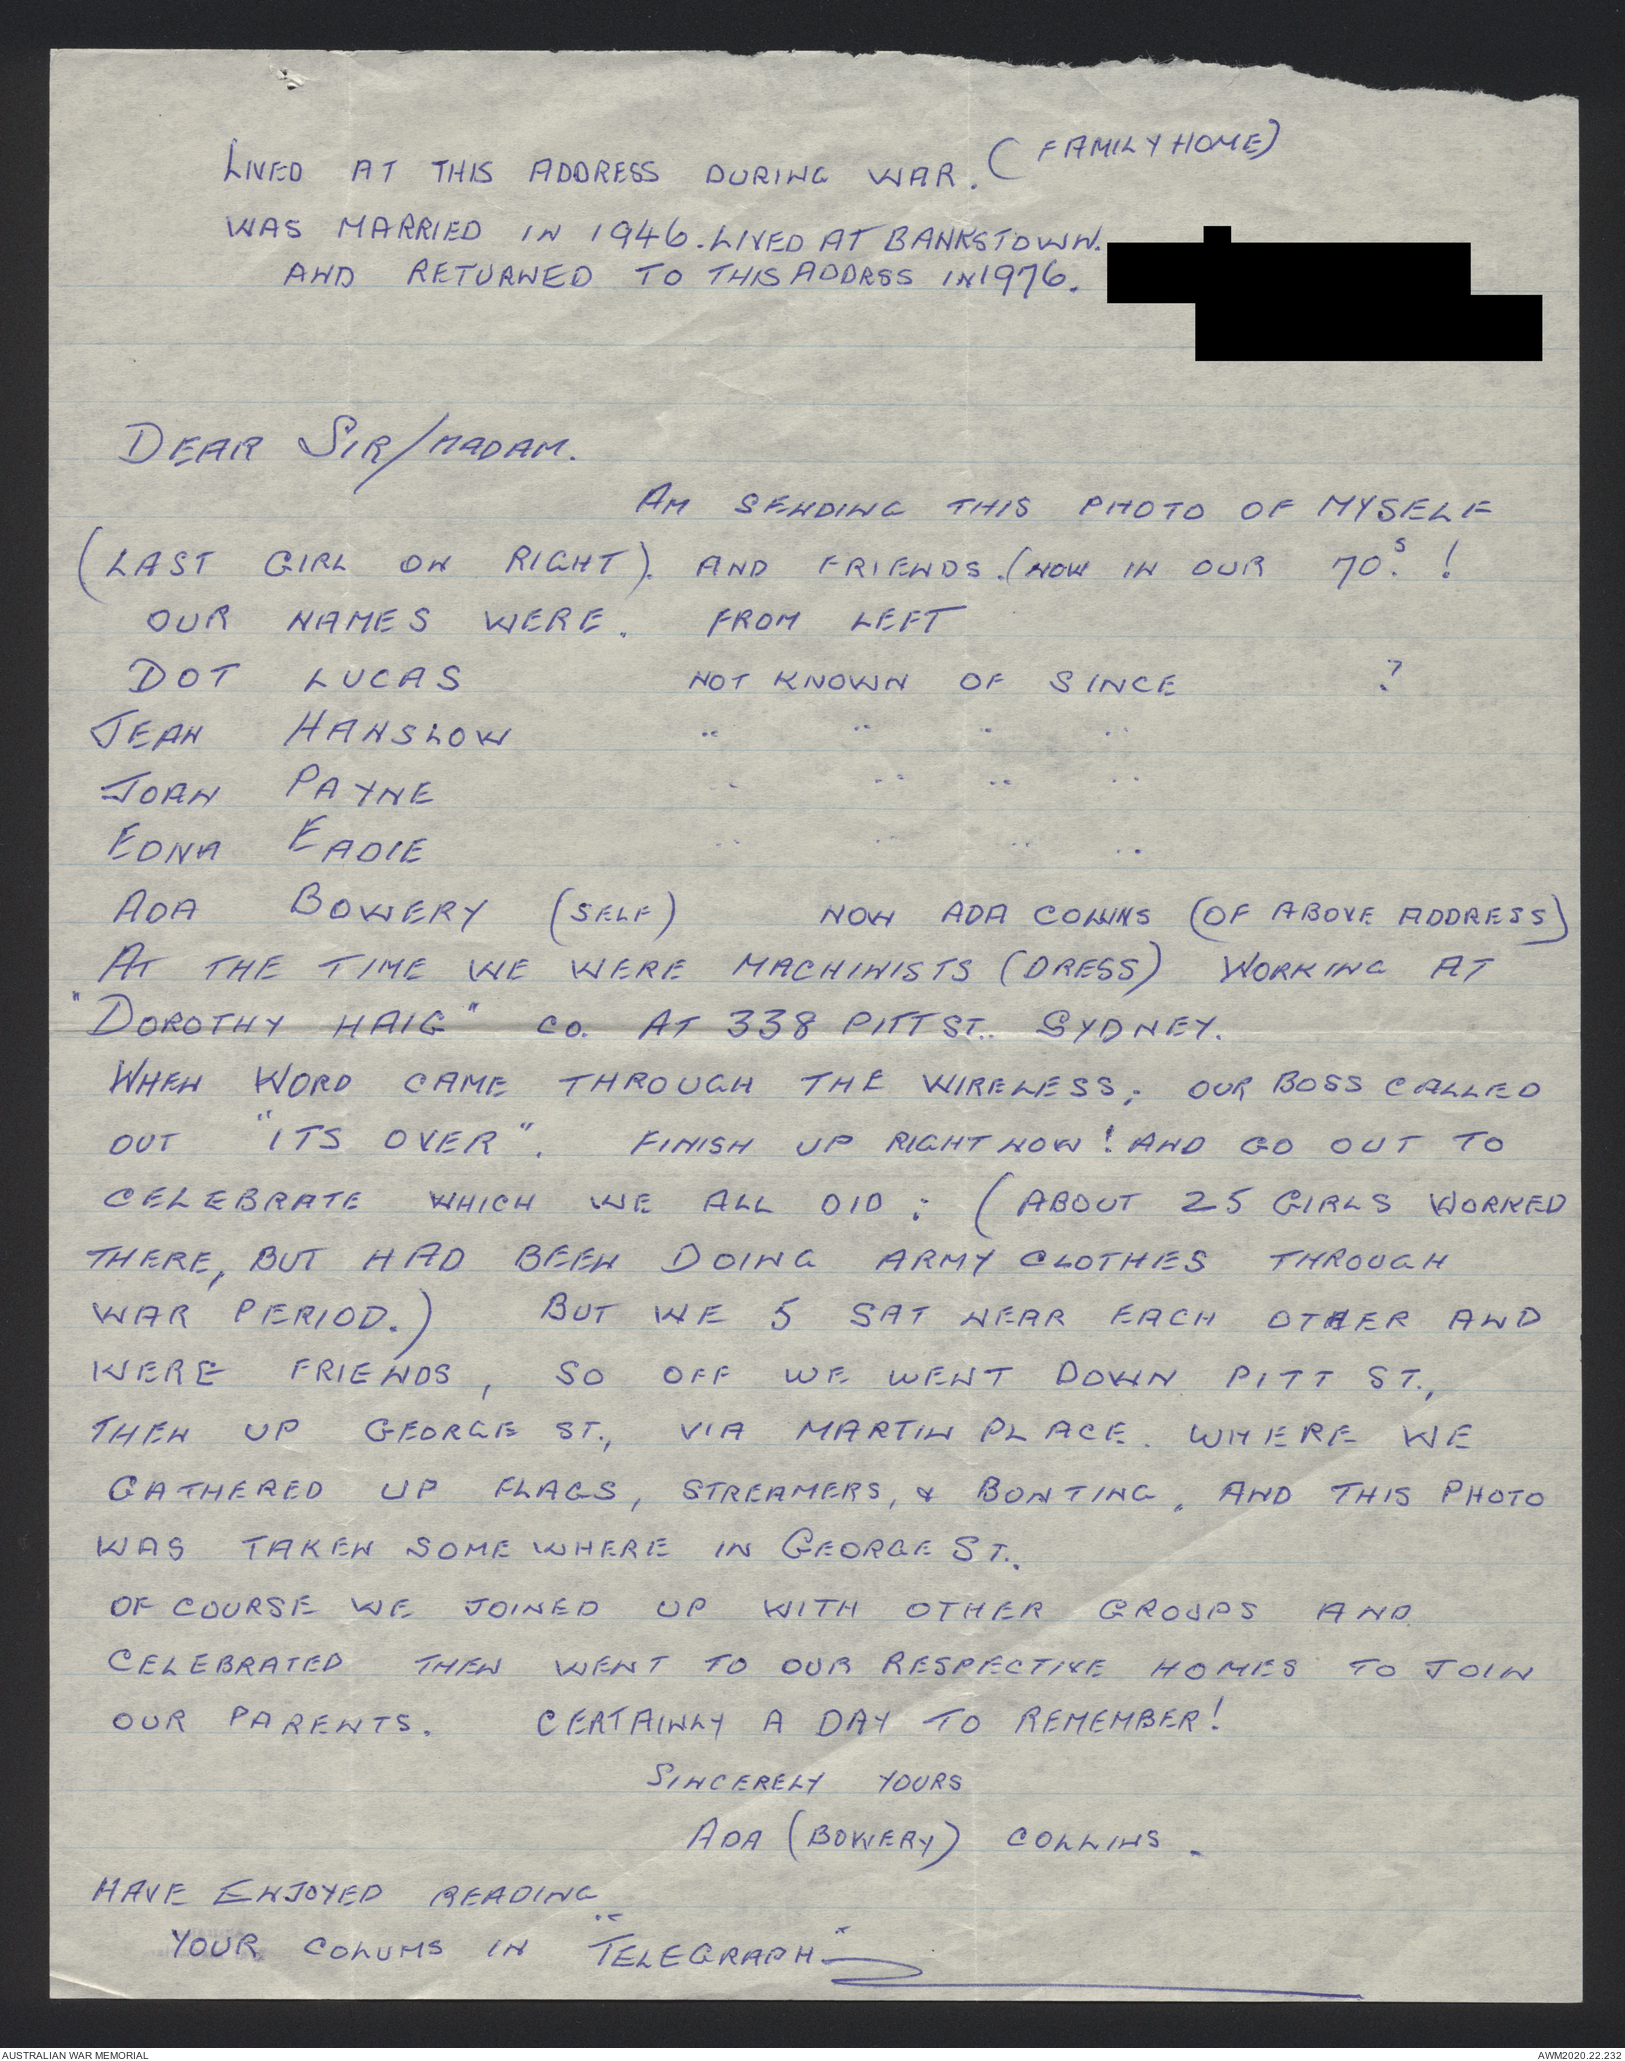 LIVED AT THIS ADDRESS DURING WAR. (FAMILY HOME)
WAS MARRIED IN 1946. LIVED AT BANKSTOWN.
AND RETURNED TO THIS ADDRSS IN 1976.
DEAR SIR/MADAM.
AM SENDING THIS PHOTO OF MYSELF
(LAST GIRL ON RIGHT). AND FRIENDS. (NOW IN OUR 70.S !
OUR NAMES WERE. FROM LEFT
DOT LUCAS NOT KNOWN OF SINCE ?
JEAN HANSLOW " " " "
JOAN PAYNE " " " "
EDNA EADIE " " " "
ADA BOWERY (SELF) NOW ADA COLLINS (OF ABOVE ADDRESS)
AT THE TIME WE WERE MACHINISTS (DRESS) WORKING AT
"DOROTHY HAIG" CO. AT 338 PITT ST.. SYDNEY.
WHEN WORD CAME THROUGH THE WIRELESS; OUR BOSS CALLED
OUT "ITS OVER". FINISH UP RIGHT NOW! AND GO OUT TO
CELEBRATE WHICH WE ALL DID ; (ABOUT 25 GIRLS WORKED
THERE, BUT HAD BEEN DOING ARMY CLOTHES THROUGH
WAR PERIOD.) BUT WE 5 SAT NEAR EACH OTHER AND
WERE FRIENDS, SO OFF WE WENT DOWN PITT ST.,
THEN UP GEORGE ST., VIA MARTIN PLACE. WHERE WE
GATHERED UP FLAGS, STREAMERS, & BONTING. AND THIS PHOTO
WAS TAKEN SOMEWHERE IN GEORGE ST..
OF COURSE WE JOINED UP WITH OTHER GROUPS AND
CELEBRATED THEN WENT TO OUR RESPECTIVE HOMES TO JOIN
OUR PARENTS. CERTAINLY A DAY TO REMEMBER!
SINCERELY YOURS
ADA (BOWERY) COLLINS.
HAVE ENJOYED READING
YOUR COLUMS IN "TELEGRAPH"
AUSTRALIAN WAR MEMORIAL
AWM2020.22.232